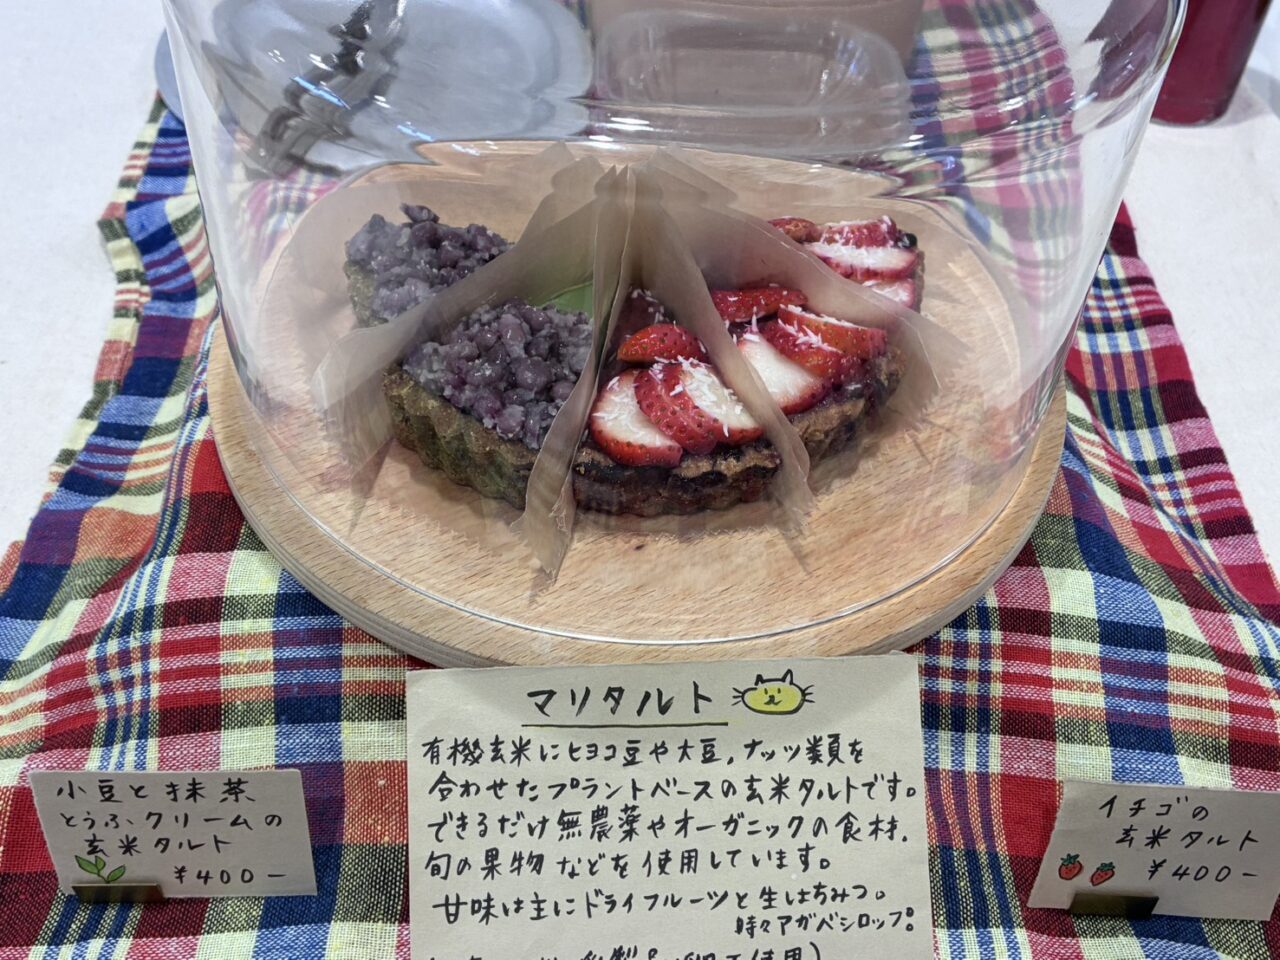 マリタルト
有機玄米にヒヨコ豆や大豆,ナッツ類を
合わせたプラントベースの玄米タルトです。
できるだけ無農薬やオーガニックの食材,
旬の果物などを使用しています。
甘味は主にドライフルーツと生はちみつ。
時々アガベシロップ。
小豆と抹茶
とうふクリームの
玄米タルト
¥400-
イチゴの
玄米タルト
¥400-